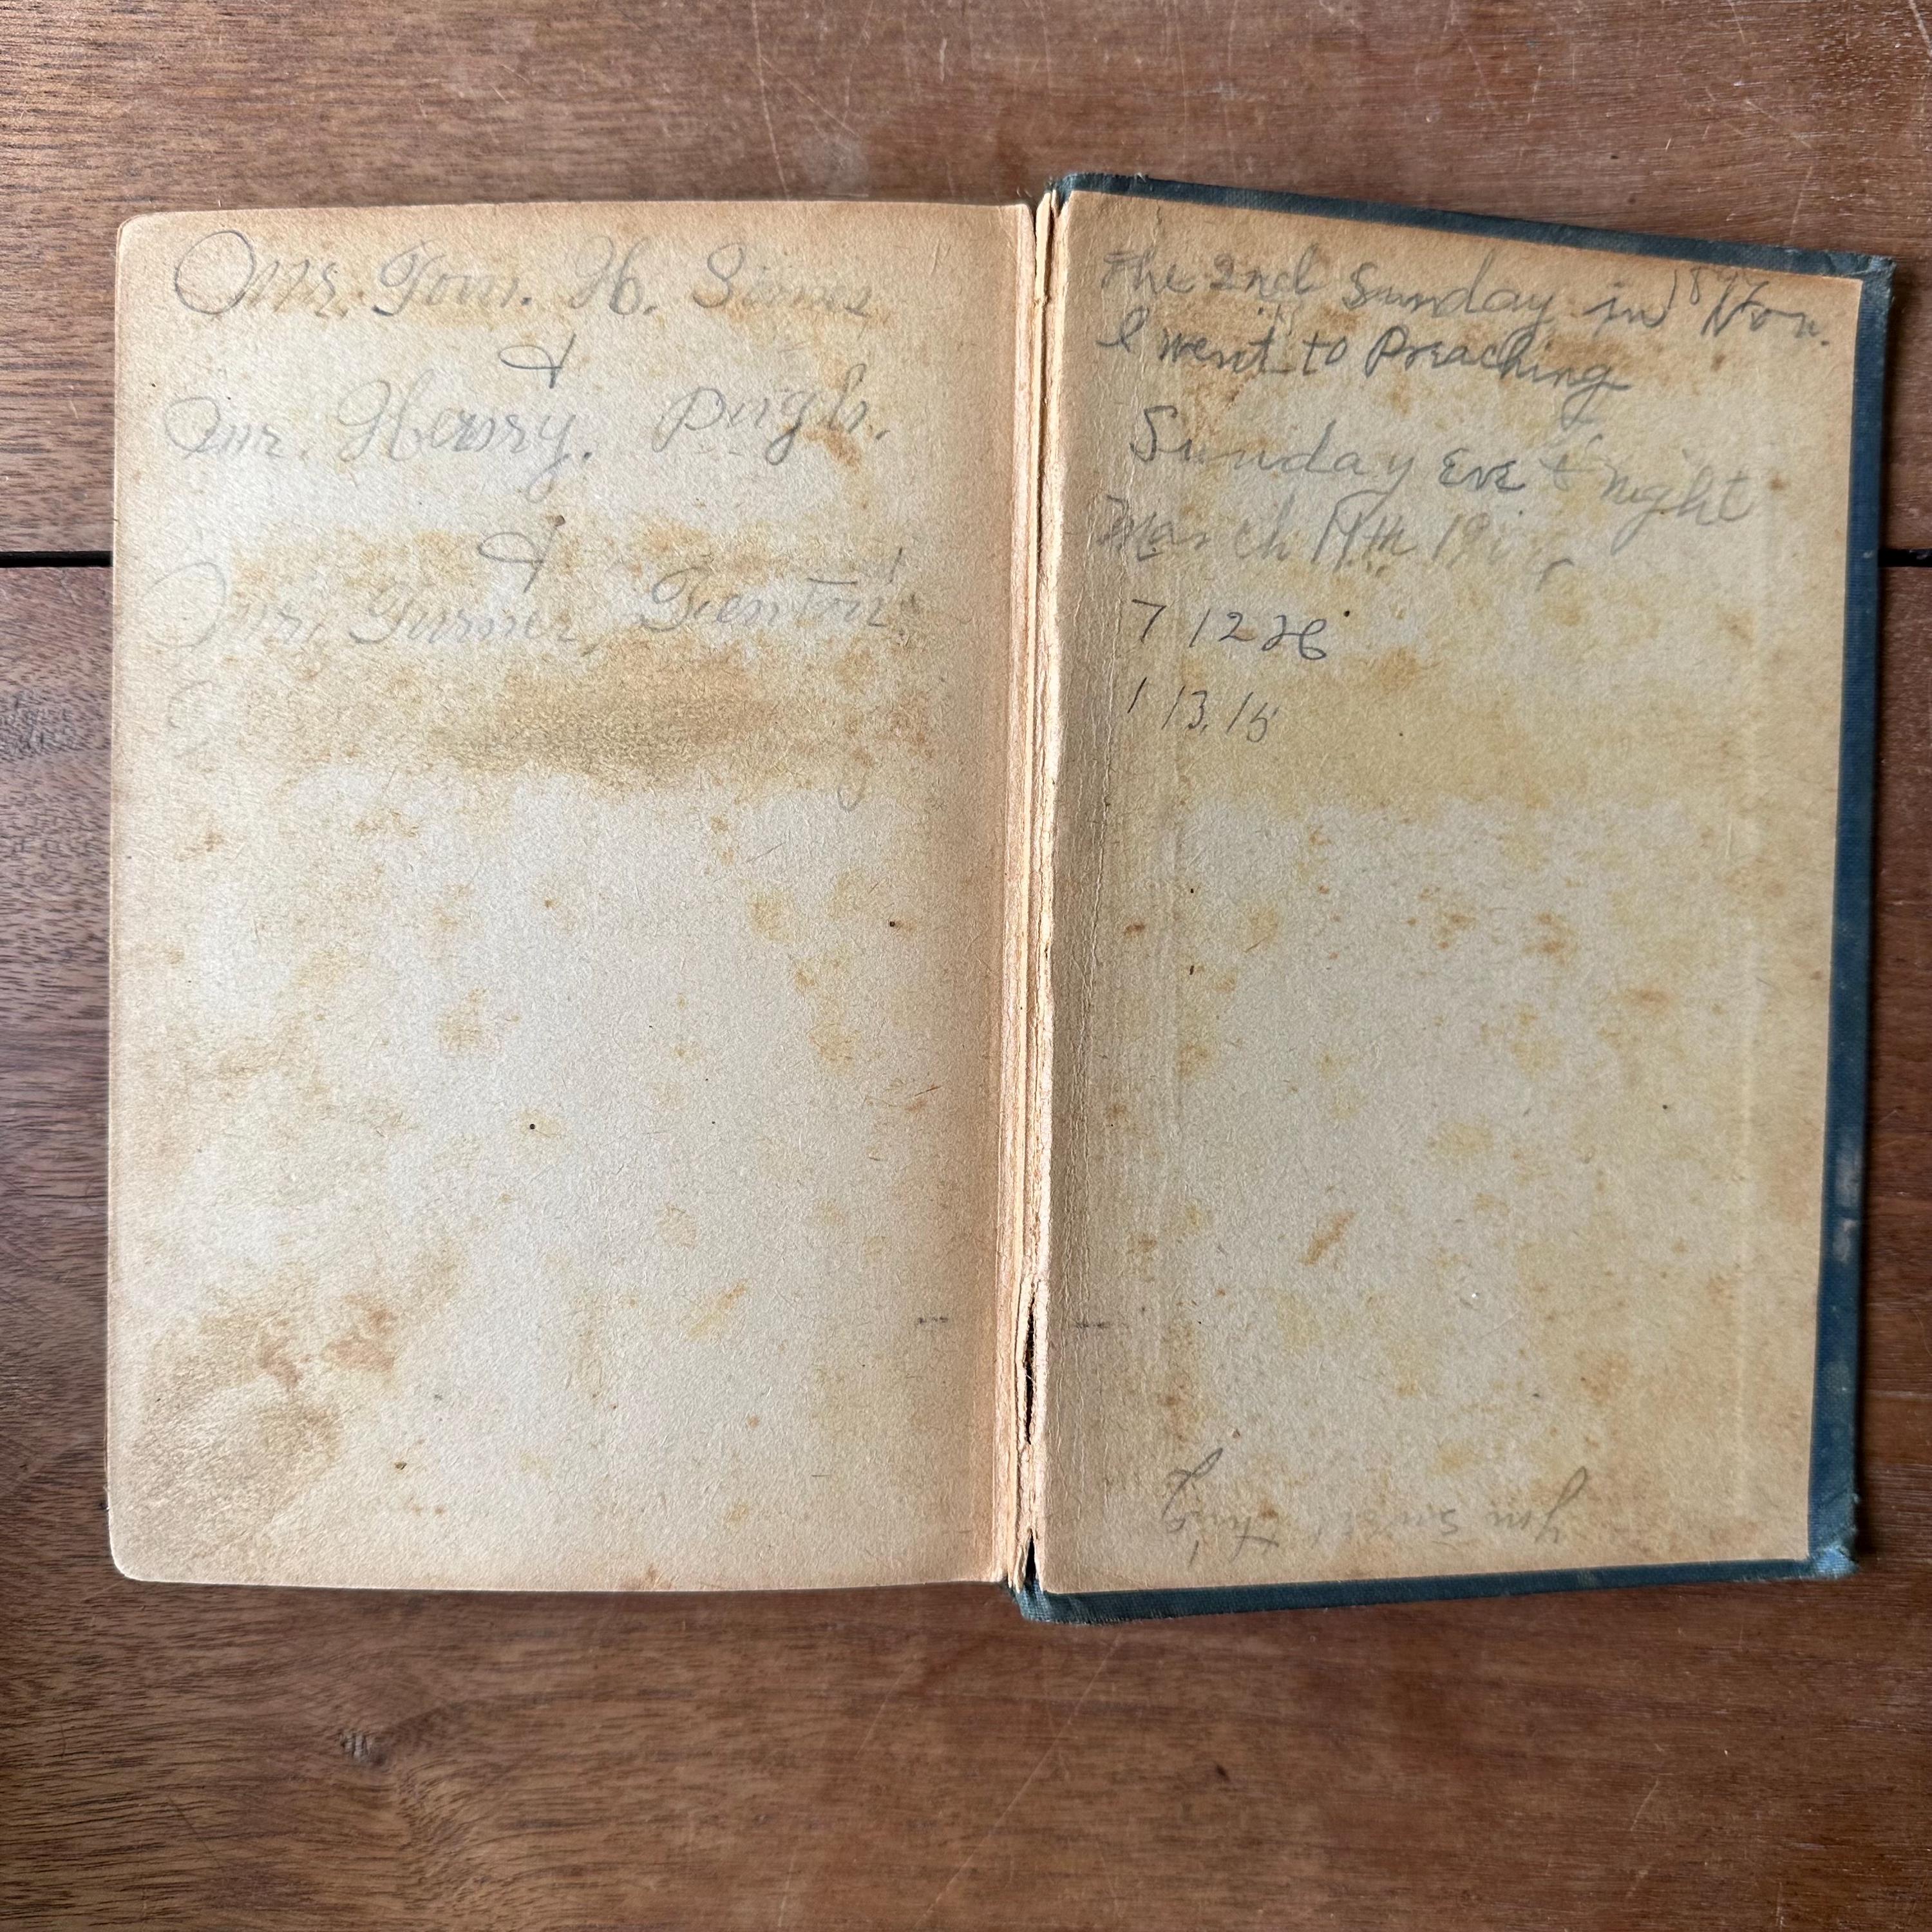 Mr. Tom. H. Sims
&
Mr. Henry. Pugh.
&
Mr. Turner Fenton
The 2nd Sunday in Nov. 1897
I went to Preaching
Sunday Eve & night
March 19th
7 12 26
1 13. 15
You sweet thing